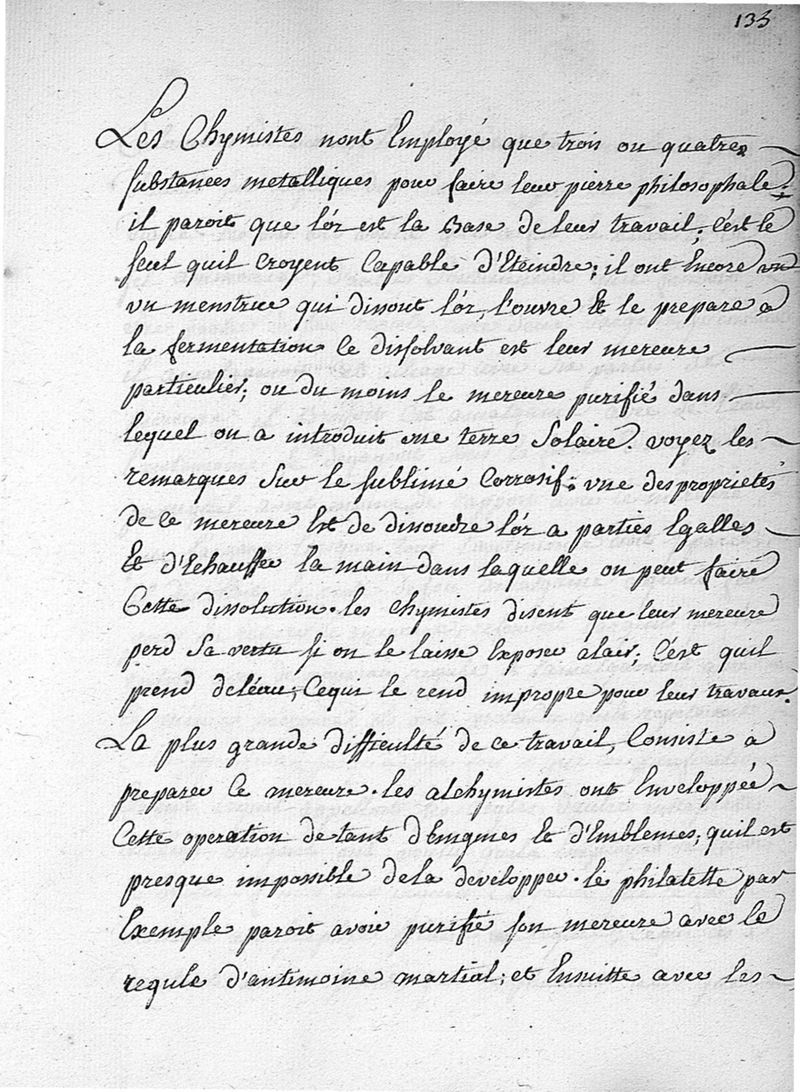 133
Les Chymistes nont Employé que trois ou quatres
substances metalliques pour faire leur pierre philosophale.
il paroit que l'or est la Base de leur travail, c'est le
seul quil croyent Capable d'Eteindre; il ont Encore un
un menstrue qui dissout l'or, l'ouvre Et le prepare a
la fermentation Ce dissolvant est leur mercure
particulier; ou du moins le mercure purifié dans
lequel on a introduit une terre Solaire. voyez les
remarques sur le sublimé Corrosif; une des proprietés
de ce mercure Est de dissoudre l'or a parties Egalles
Et d'Echauffer la main dans laquelle on peut faire
Cette dissolution. les Chymistes disent que leur mercure
perd sa vertu si on le laisse Exposer a lair; C'est quil
prend de l'eau; Cequi le rend impropre pour leur travaux.
La plus grande difficulté de ce travail, Consiste a
preparer Ce mercure. les alchymistes ont Enveloppée
Cette operation de tant d'Enigmes Et d'Emblemes, quil est
presque impossible dela developper. le philalette par
Exemple paroit avoir purifié son mercure avec le
regule d'antimoine martial; et Ensuitte avec les